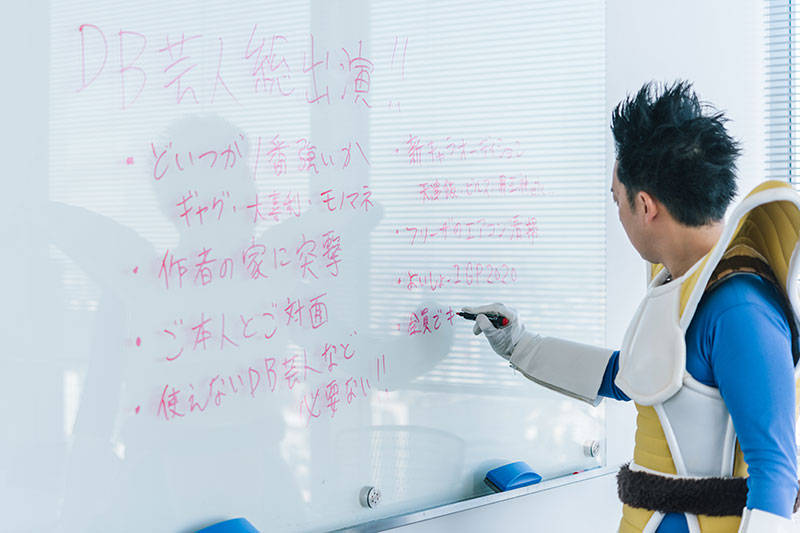 DB芸人総出演!!
・どいつが1番強いか
ギャグ・大喜利・モノマネ
・作者の家に突撃
・ご本人とご対面
・使えないDB芸人など
必要ない!!
・新キャラオーディション
・フリーザのエアコン
・よいしょ IGP2020
・全員で